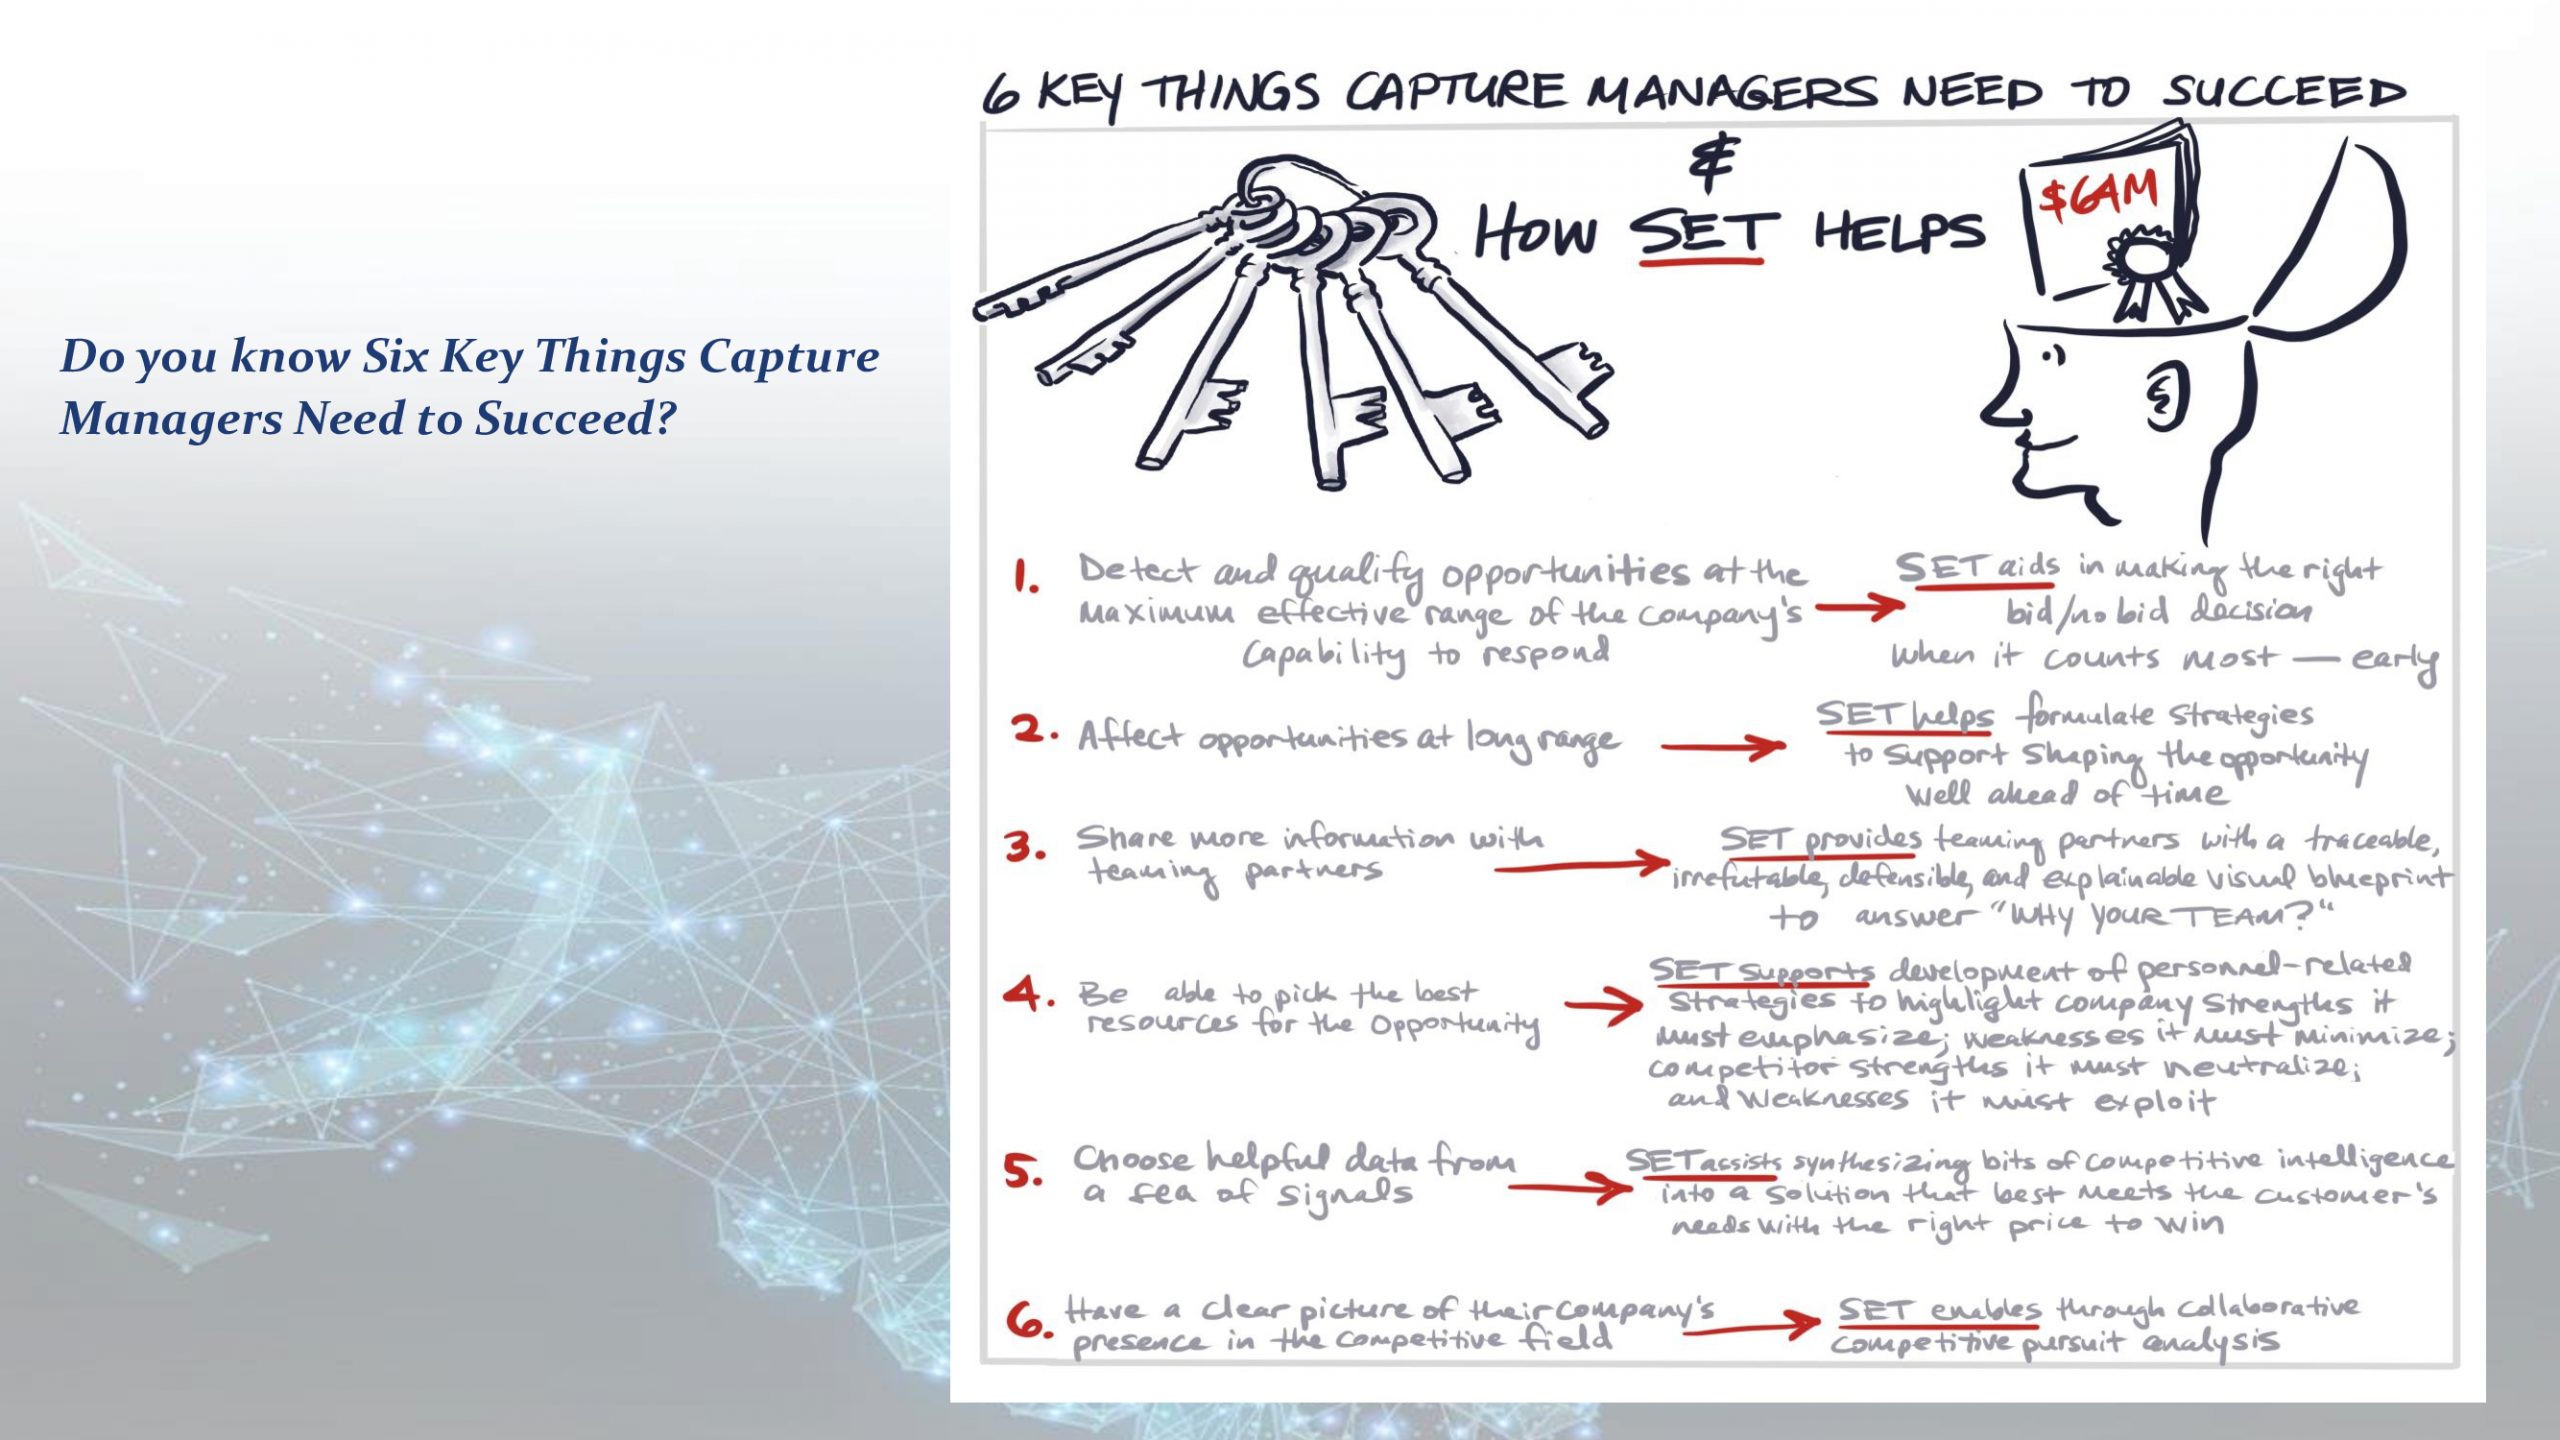 Do you know Six Key Things Capture
Managers Need to Succeed?
6 KEY THINGS CAPTURE MANAGERS NEED TO SUCCEED
&
HOW SET HELPS
$64M
1. Detect and qualify opportunities at the
maximum effective range of the company's
capability to respond
SET aids in making the right
bid/no bid decision
when it counts most — early
2. Affect opportunities at long range
SET helps formulate strategies
to support shaping the opportunity
well ahead of time
3. Share more information with
teaming partners
SET provides teaming partners with a traceable,
irrefutable, defensible, and explainable visual blueprint
to answer "WHY YOUR TEAM?"
4. Be able to pick the best
resources for the opportunity
SET supports development of personnel-related
strategies to highlight company strengths it
must emphasize; weaknesses it must minimize;
competitor strengths it must neutralize;
and weaknesses it must exploit
5. Choose helpful data from
a sea of signals
SET assists synthesizing bits of competitive intelligence
into a solution that best meets the customer's
needs with the right price to win
6. Have a clear picture of their company's
presence in the competitive field
SET enables through collaborative
competitive pursuit analysis